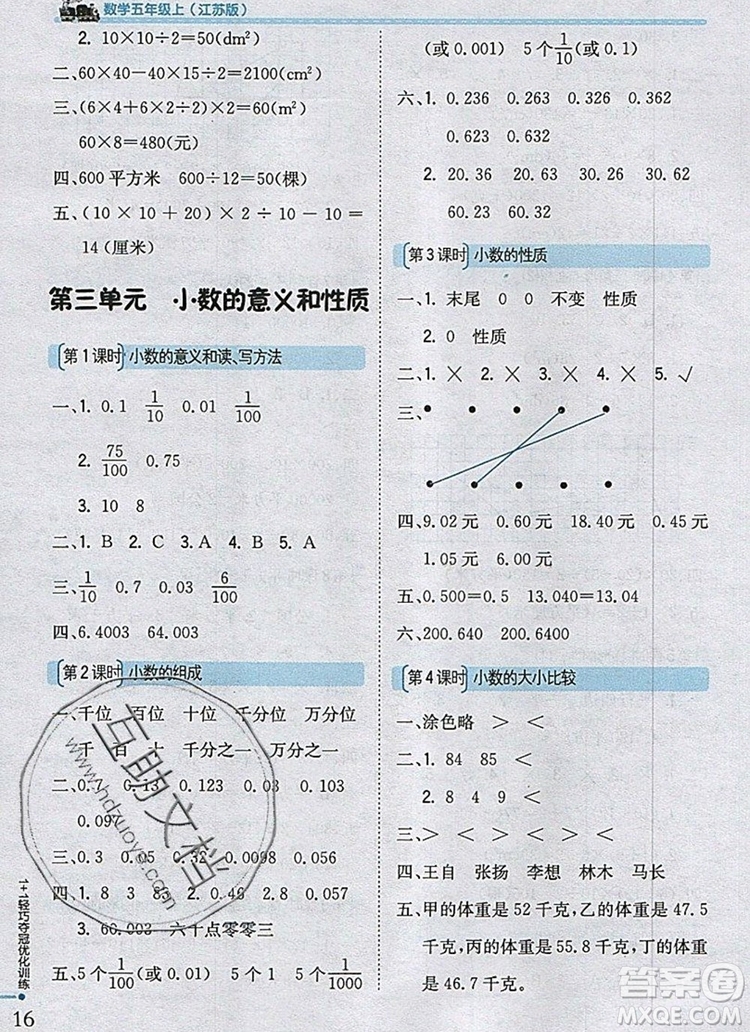 数学五年级上（江苏版）
2. 10×10÷2=50(dm²)
二、60×40-40×15÷2=2100(cm²)
三、(6×4+6×2÷2)×2=60(m²)
60×8=480(元)
四、600平方米 600÷12=50(棵)
五、(10×10+20)×2÷10-10=
14(厘米)
第三单元 小数的意义和性质
第1课时 小数的意义和读、写方法
一、1. 0.1 1/10 0.01 1/100
2. 75/100 0.75
3. 10 8
二、1. B 2. B 3. B 4. A 5. A
三、1/10 0.7 0.03 6/100
四、6.4003 64.003
第2课时 小数的组成
一、千位 百位 十位 千分位 万分位
千 百 十 千分之一 万分之一
二、0.3 0.13 0.123 0.03 0.103
0.09
三、0.3 0.45 0.32 0.0098 0.056
四、1. 4 8 3 8 2. 0.48 2.8 0.46
3. 66.003 六十点零零三
五、5个1/100(或0.01) 5个1/1000
(或0.001) 5个1/10(或0.1)
六、1. 0.236 0.263 0.326 0.362
0.623 0.632
2. 20.36 20.63 30.26 30.62
60.23 60.32
第3课时 小数的性质
一、1. 末尾 0 0 不变 性质
2. 0 性质
二、1.× 2.× 3.× 4.× 5.√
三、
四、9.02元 0.60元 18.40元 0.45元
1.05元 6.00元
五、0.500=0.5 13.040=13.04
六、200.640 200.6400
第4课时 小数的大小比较
一、涂色略 > > <
二、1. 84 85 < <
2. 8 4 9 <
三、> < > < > <
四、王自 张扬 李想 林木 马长
五、甲的体重是52千克，乙的体重是47.5
千克，丙的体重是55.8千克，丁的体
重是46.7千克。
1+1轻巧夺冠优化训练
16
互助文档
www.hdzuoye.com
答案圈
MXQE.COM